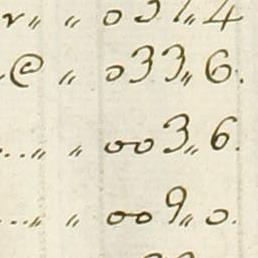 v„ „ 037„4
@ „ 033„6.
..„ „ 003„6.
...„ „ 009„0.